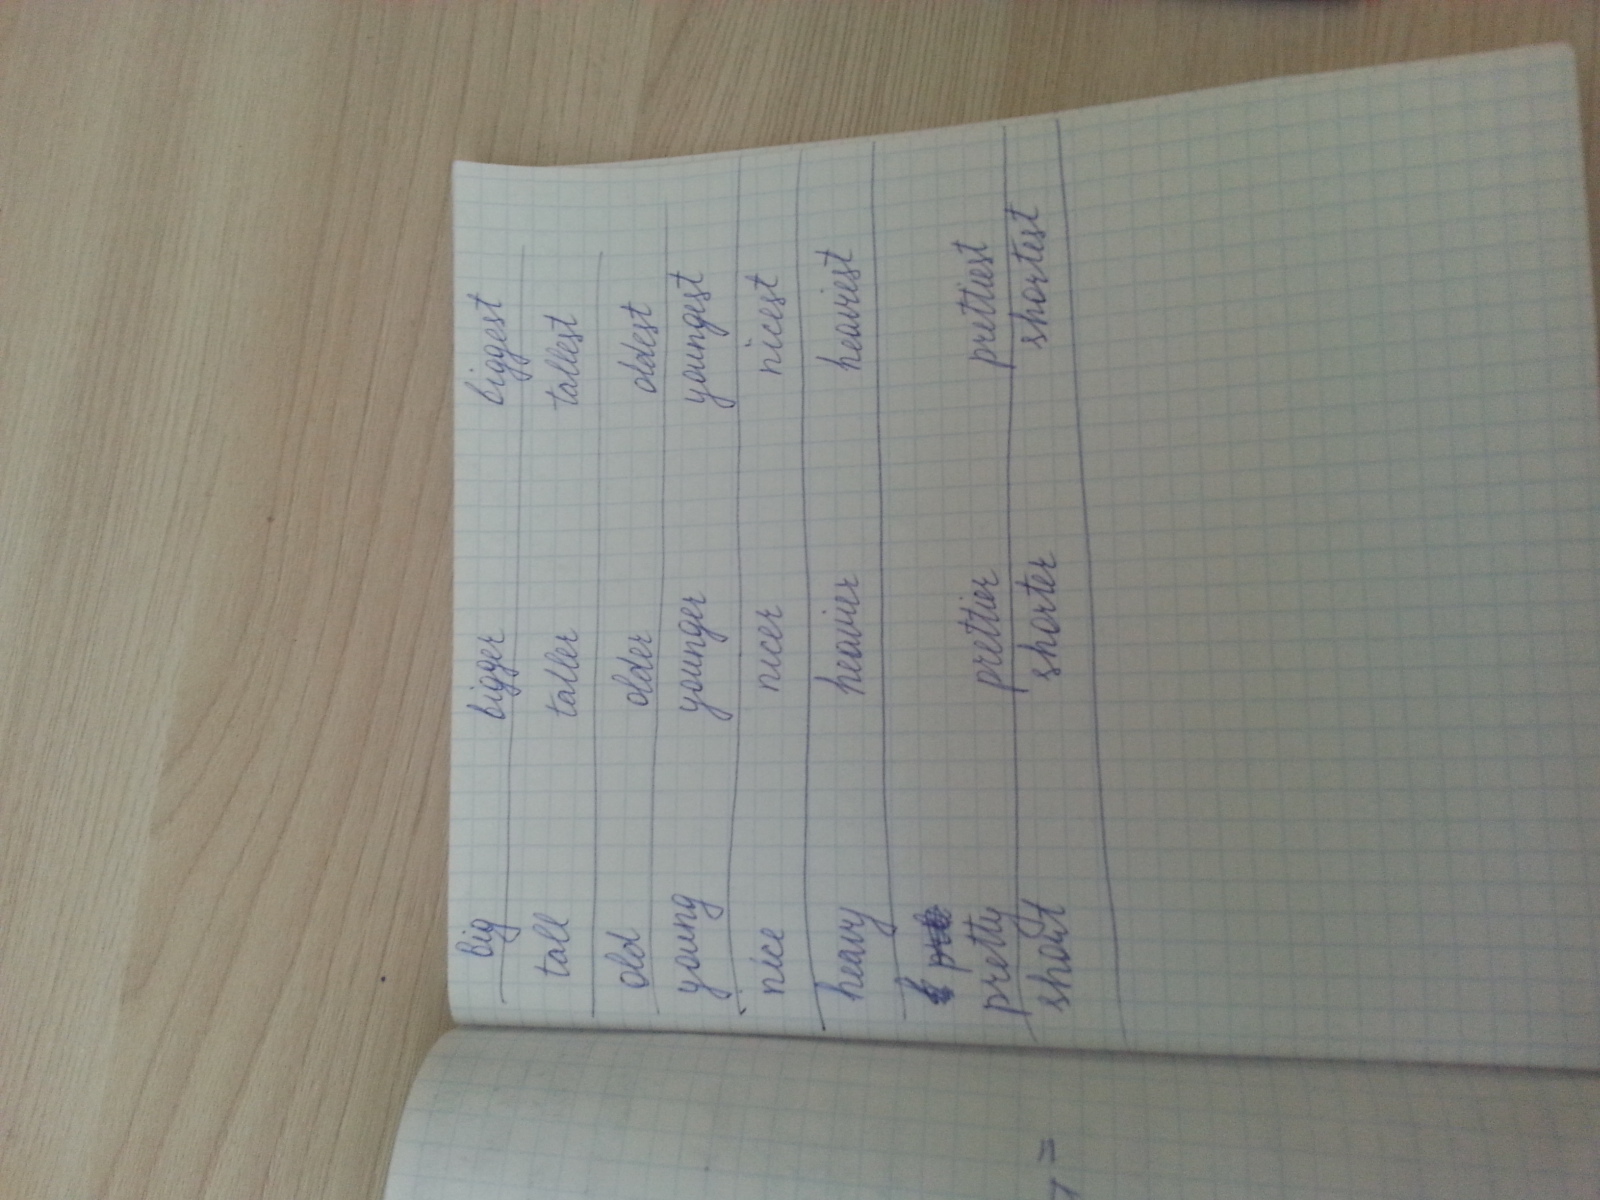 big bigger biggest
tall taller tallest
old older oldest
young younger youngest
nice nicer nicest
heavy heavier heaviest
pretty prettier prettiest
short shorter shortest
=